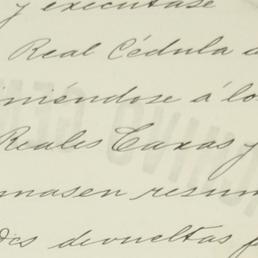 y execútase
Real Cédula
niéndose á lo
Reales Caxas y
masen resum
devueltas